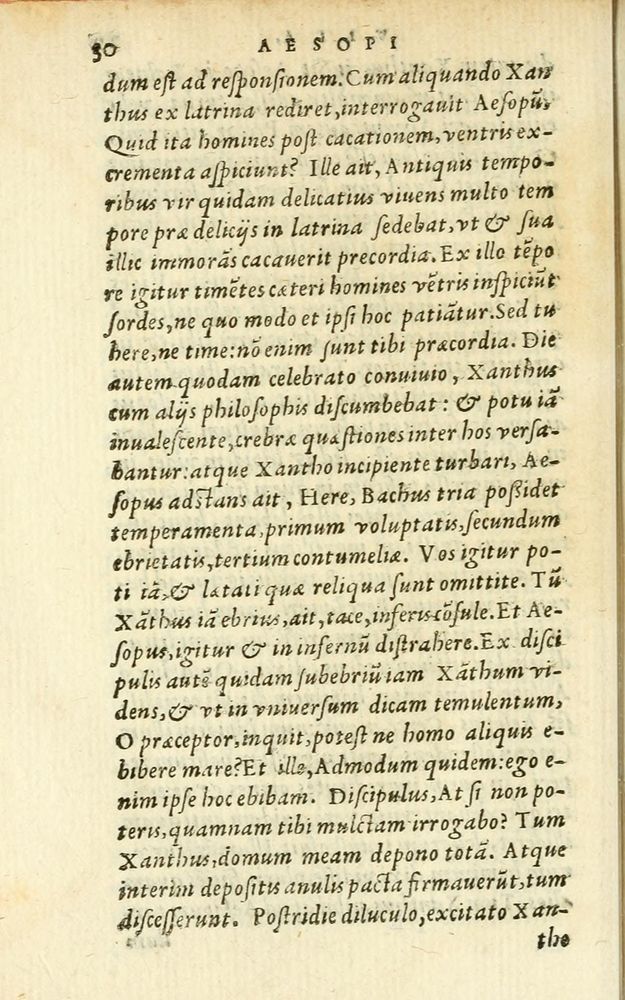 50 AESOPI
dum est ad responsionem. Cum aliquando Xan
thus ex latrina rediret, interrogauit Aesopū.
Quid ita homines post cacationem, ventris ex-
crementa aspiciunt? Ille ait, Antiquis tempo-
ribus vir quidam delicatius viuens multo tem
pore præ delicijs in latrina sedebat, vt & sua
illic immorās cacauerit precordia. Ex illo tēpo
re igitur timētes cæteri homines vētris inspiciūt
sordes, ne quo modo et ipsi hoc patiātur. Sed tu
here, ne time: nō enim sunt tibi præcordia. Die
autem quodam celebrato conuiuio, Xanthus
cum alijs philosophis discumbebat: & potu iā
inualescente, crebræ quæstiones inter hos versa-
bantur: atque Xantho incipiente turbari, Ae-
sopus adstans ait, Here, Bachus tria possidet
temperamenta, primum voluptatis, secundum
ebrietatis, tertium contumeliæ. Vos igitur po-
ti iā, & lætati quæ reliqua sunt omittite. Tū
Xāthus iā ebrius, ait, tace, inferis cōsule. Et Ae-
sopus, igitur & in infernū distrahere. Ex disci
pulis autē quidam subebriū iam Xāthum vi-
dens, & vt in vniuersum dicam temulentum,
O præceptor, inquit, potest ne homo aliquis e-
bibere mare? Et ille, Admodum quidem: ego e-
nim ipse hoc ebibam. Discipulus, At si non po-
teris, quamnam tibi mulctam irrogabo? Tum
Xanthus, domum meam depono totā. Atque
interim depositis anulis pacta firmauerūt, tum
discesserunt. Postridie diluculo, excitato Xan-
the